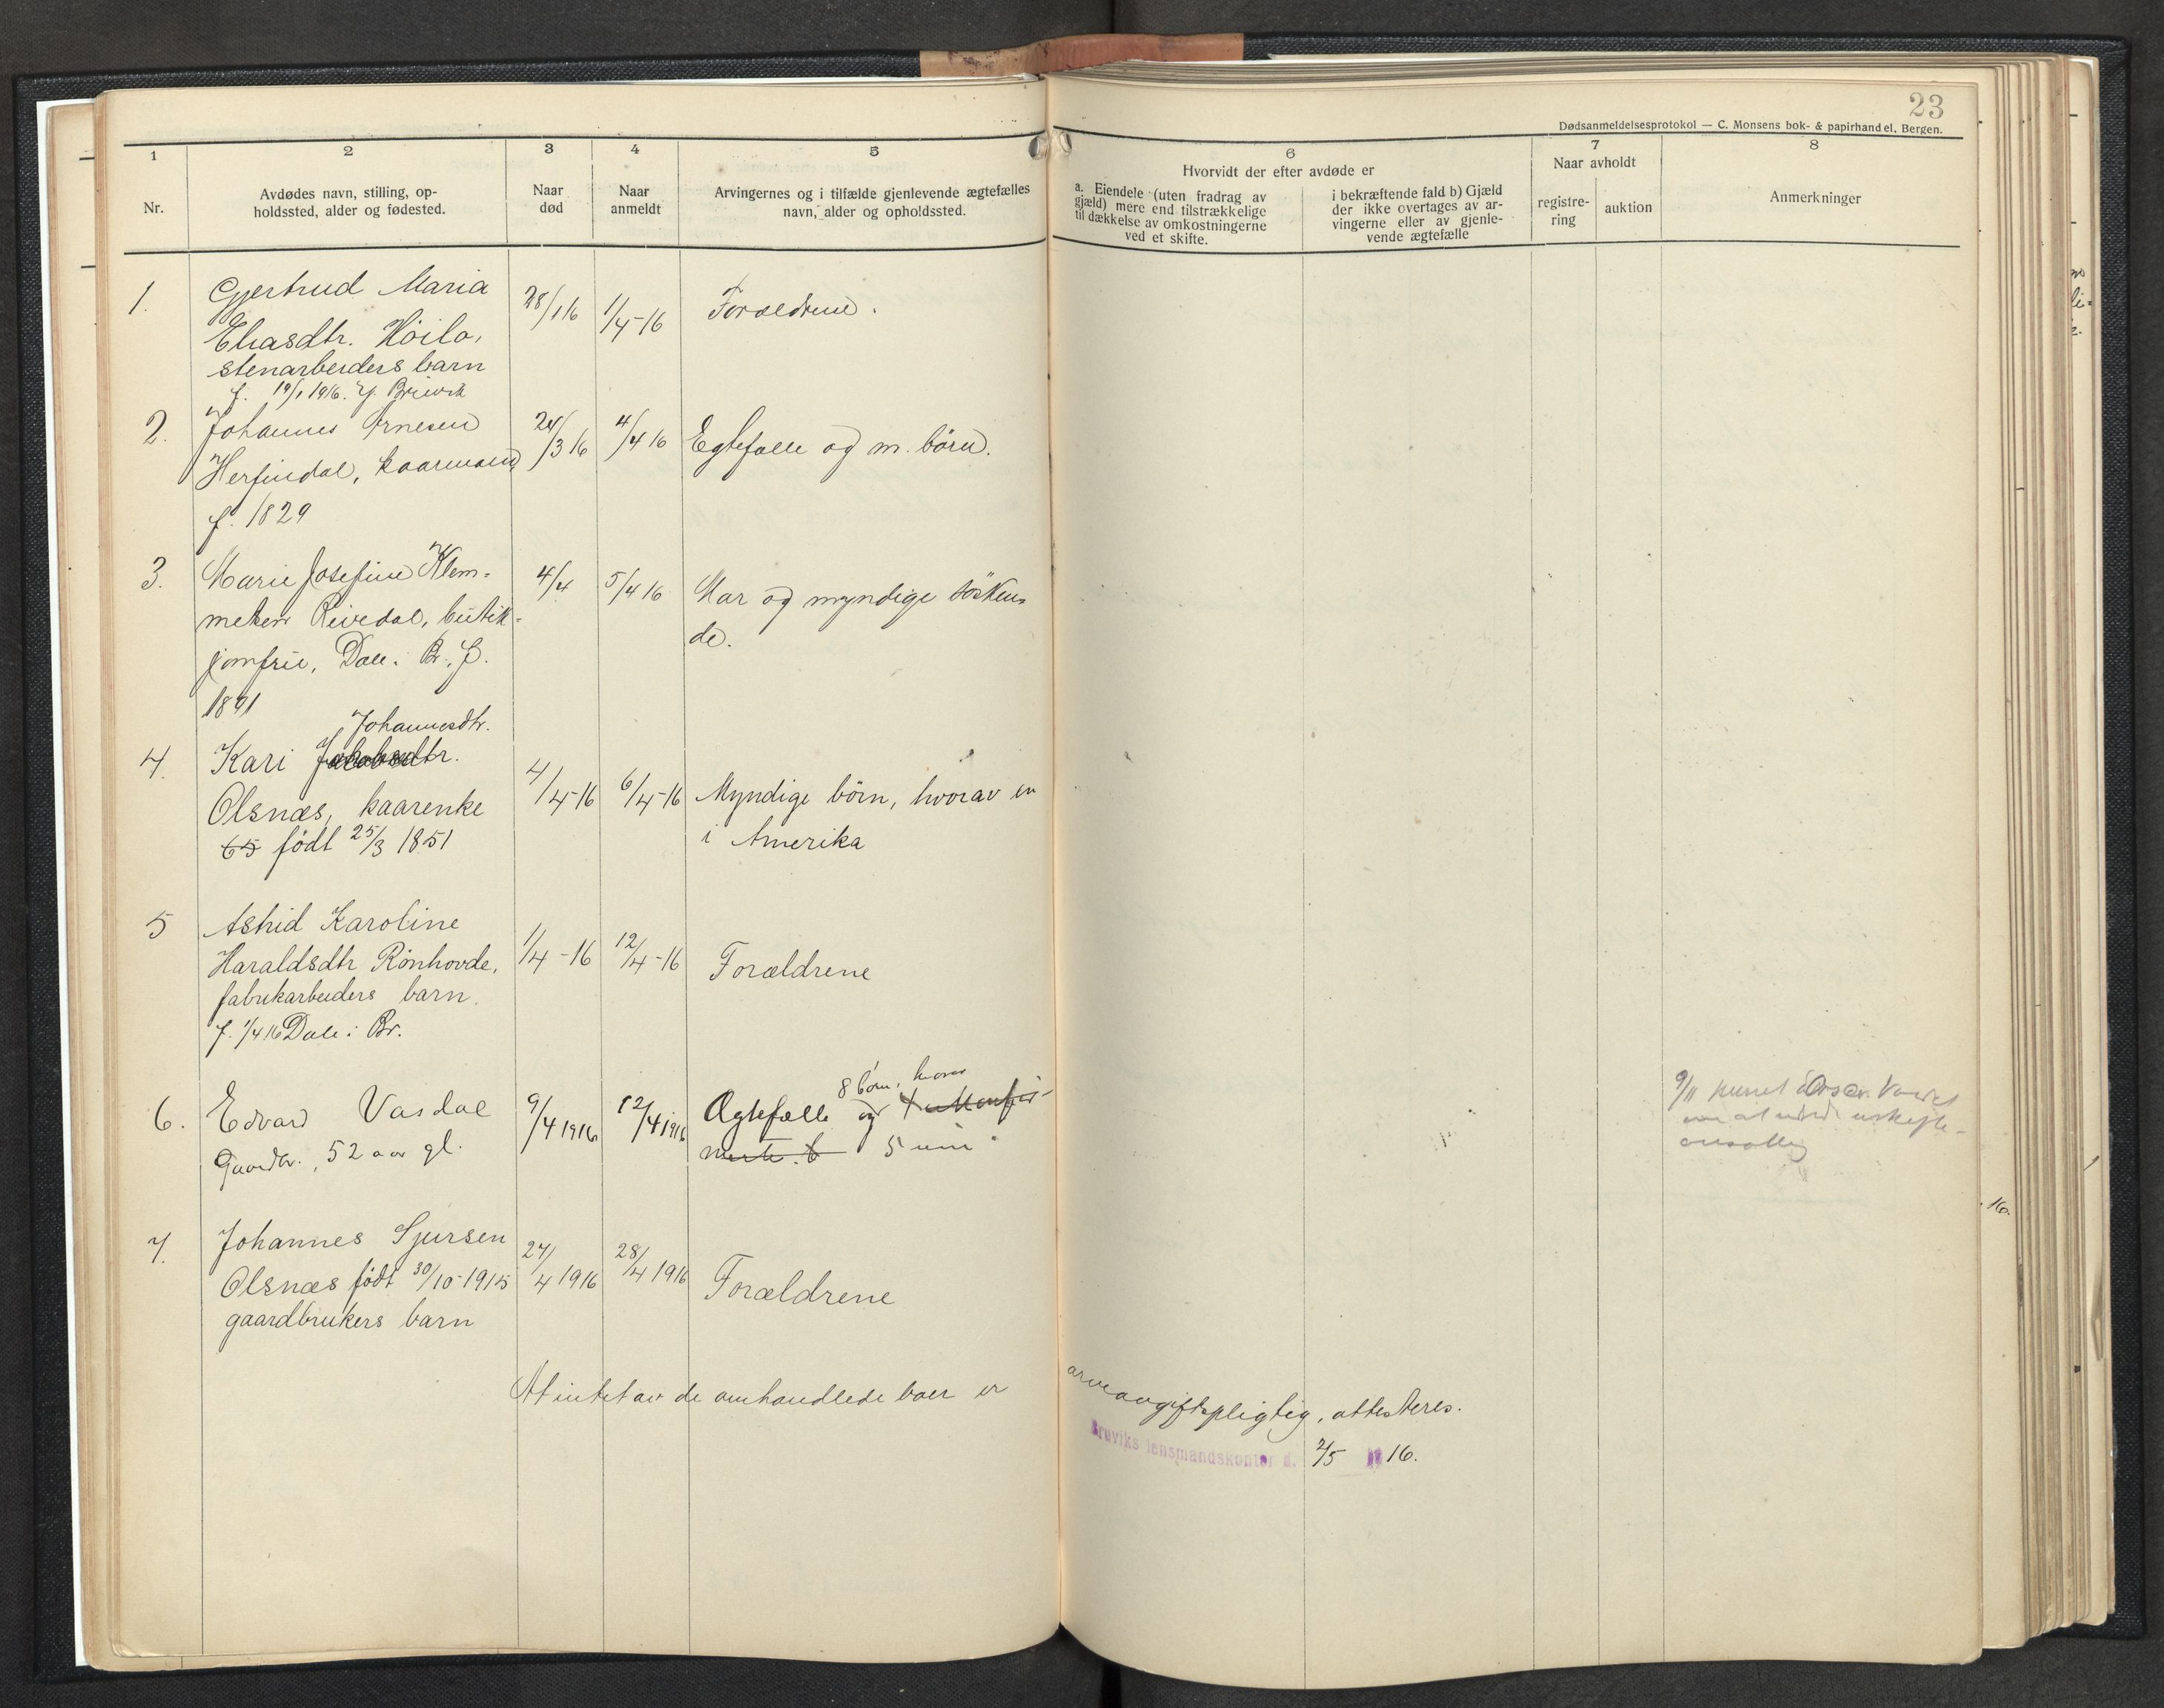 23
Dødsanmeldelsesprotokol — C. Monsens bok- & papirhandel, Bergen.
1
2
3
4
5
6
7
8
Nr.
Avdødes navn, stilling, op-
holdssted, alder og fødested.
Naar
død
Naar
anmeldt
Arvingernes og i tilfælde gjenlevende ægtefælles
navn, alder og opholdssted.
Hvorvidt der efter avdøde er
a. Eiendele (uten fradrag av
gjæld) mere end tilstrækkelige
til dækkelse av omkostningerne
ved et skifte.
i bekræftende fald b) Gjæld
der ikke overtages av ar-
vingerne eller av gjenle-
vende ægtefælle
Naar avholdt
registre-
ring
auktion
Anmerkninger
1. Gjertrud Maria 28/1 16 1/4-16 Forældrene.
Eliasdtr. Höilo,
stenarbeiders barn
f. 19/1 1916. Bruvik
2. Johannes Arnesen 24/3 16 4/4 16 Egtefælle og m. börn.
Herfindal, kaarmand
f. 1829
3. Marie Josefine Klem- 4/4 5/4 16 Mor og myndige sösken-
metsen Reivedal, butik- de.
jomfru, Dale i Br. f.
1891
Johannesdtr.
4. Kari Jakobsdtr. 4/4-16 6/4-16 Myndige börn, hvorav en
Olsnæs, kaarenke i Amerika
65 født 25/3 1851
5 Astrid Karoline 1/4-16 12/4-16 Forældrene
Haraldsdtr Rönhovde,
fabrikarbeiders barn.
f. 1/4 16 Dale i Br.
8 börn, hvorav
6. Edvard Vasdal 9/4 1916 12/4 1916 Ægtefælle og 4
Gaardbr., 52 aar gl. 5 um
7. Johannes Sjursen 27/4 1916 28/4 1916 Forældrene
Olsnæs født 30/10-1915
gaardbrukers barn
9/11
At intet av de omhandlede boer er arveavgiftspligtig, attesteres.
Bruviks lensmandskontor d. 2/5 1916.
16.